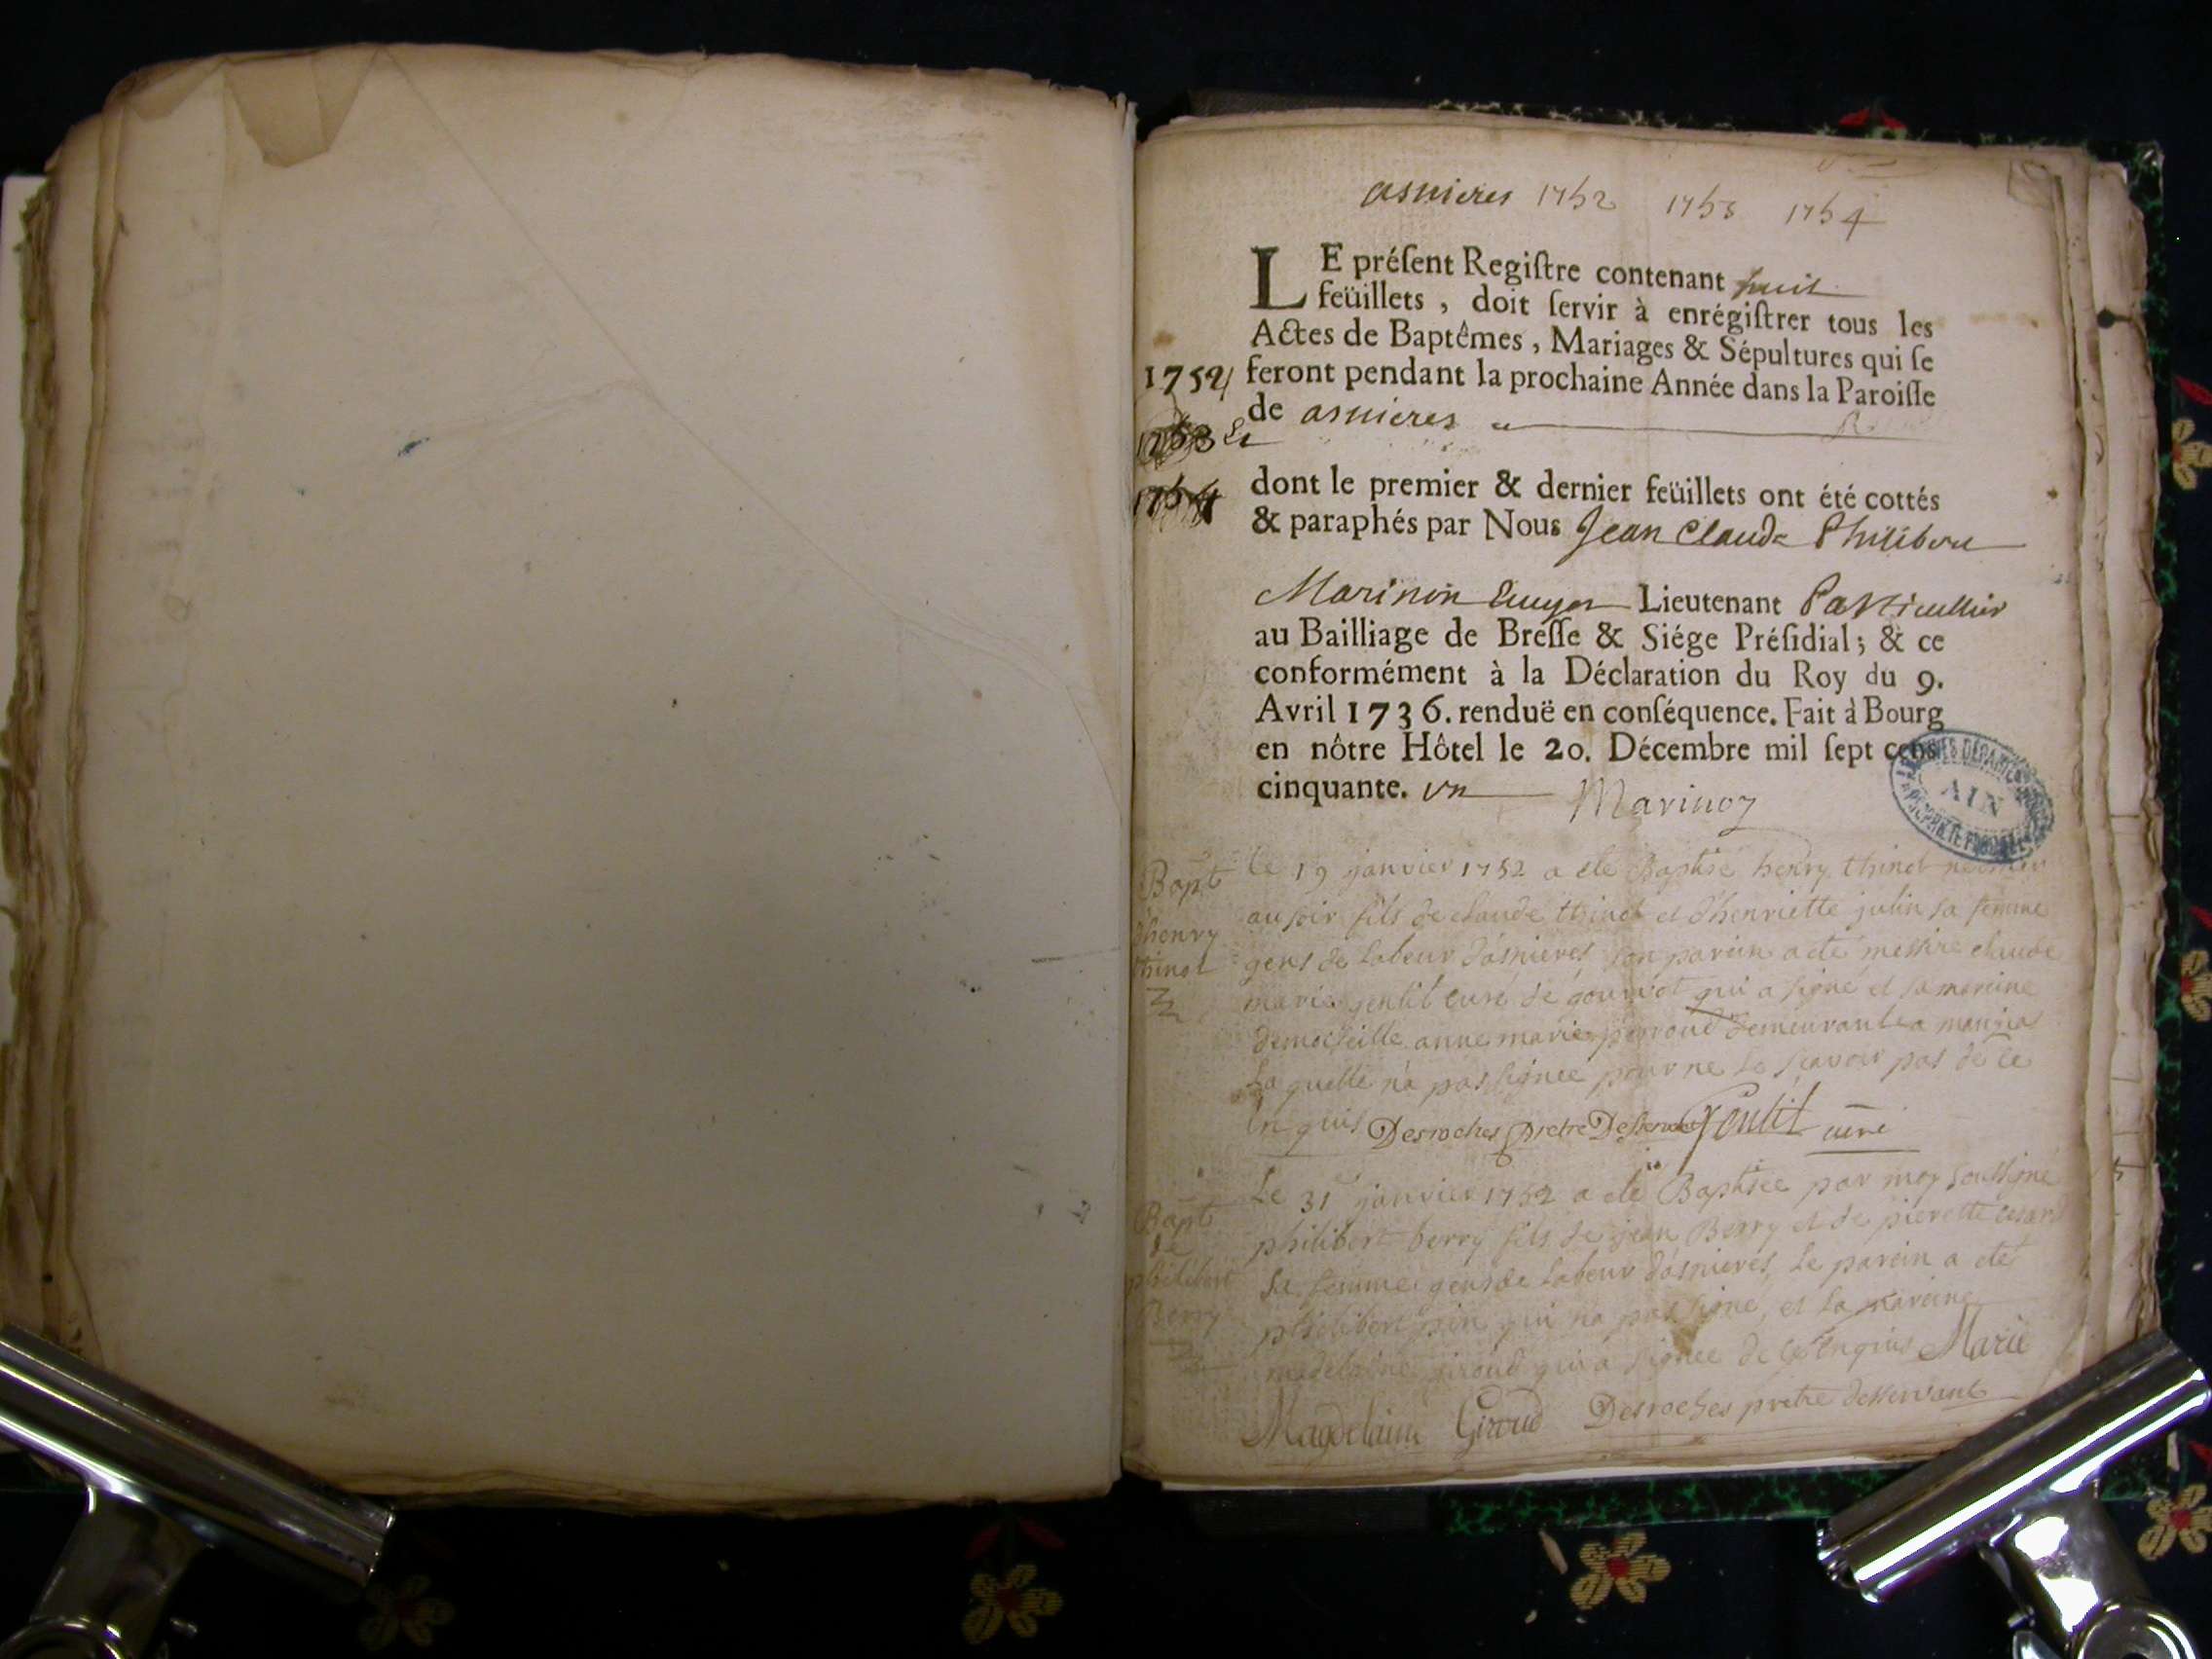 asnieres 1752 1753 1754
LE préſent Regiſtre contenant huit
feüillets, doit ſervir à enrégiſtrer tous les
Actes de Baptêmes, Mariages & Sépultures qui ſe
1752 feront pendant la prochaine Année dans la Paroiſſe
de asnieres
1753 &
1754
dont le premier & dernier feüillets ont été cottés
& paraphés par Nous Jean Claude Philibert
Marinon Ecuyer Lieutenant Particullier
au Bailliage de Breſſe & Siége Préſidial; & ce
conformément à la Déclaration du Roy du 9.
Avril 1736. renduë en conſéquence. Fait à Bourg
en nôtre Hôtel le 20. Décembre mil ſept cens
cinquante. un Marinon
ARCHIVES DÉPARTEMENTALES AIN PROPRIÉTÉ PUBLIQUE
Bapt
d'henry
thinot
le 19 janvier 1752 a ete Baptisé henry thinot né
au soir fils de claude thinot et d'henriette julin sa femme
gens de labeur d'asnieres son parein a ete messire claude
marie gentil curé de gourvot qui a signé et sa mareine
demoiseille anne marie perroud demeurante a manzia
laquelle n'a pas signée pour ne le scavoir pas de ce
enquis Desroches pretre Desservant Gentil curé
Bapt
de
philibert
Berry
Le 31 janvier 1752 a ete Baptisée par moy soussigné
philibert berry fils de jean Berry et de pierette
sa femme gens de labeur d'asnieres, le parein a ete
philibert pin qui n'a pas signé, et la mareine
madelaine giroud qui a signée de ce enquis Marie
Magdelaine Giroud Desroches pretre desservant